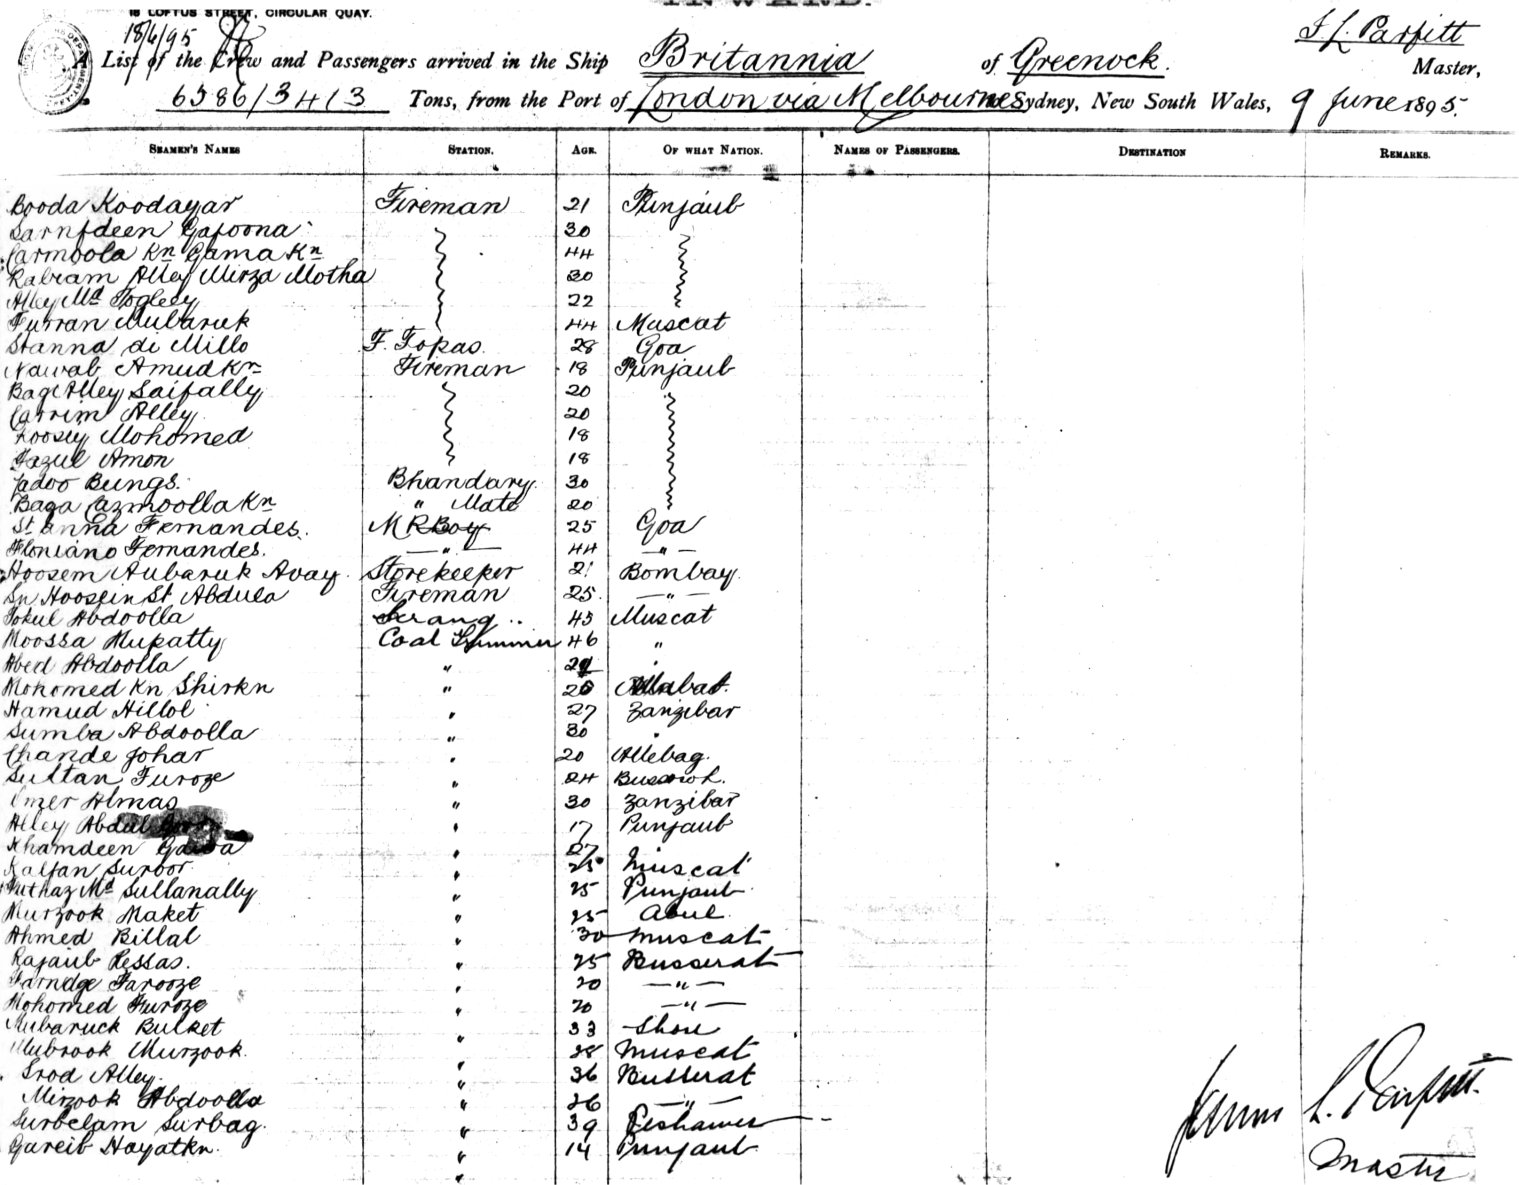 18 LOFTUS STREET, CIRCULAR QUAY.
INWARD.
18/6/95
J L. Parfitt
A List of the Crew and Passengers arrived in the Ship Britannia of Greenock. Master,
6586/3413 Tons, from the Port of London via Melbourne Sydney, New South Wales, 9 June 1895.
SEAMEN'S NAMES STATION. AGE. OF WHAT NATION. NAMES OF PASSENGERS. DESTINATION REMARKS.
Booda Koodayar Fireman 21 Punjaub
Sarnfdeen Gafoona 30
Carmoola Kn Gama Kn 44
Rabram Alley Mirza Motha 30
Alley Md Fogleey 22
Furran Mubaruk 44 Muscat
Stanna di Millo F. Topas 28 Goa
Nawab Amud Kn Fireman 18 Punjaub
Bage Alley Saifally 20
Carrim Alley 20
Goosey Mohomed 18
Fazul Amon 18
Jadoo Bungs. Bhandary. 30
Baga Cazmoolla Kn " Mate 20
St. Anna Fernandes. M R Boy 25 Goa
Floriano Fernandes. — " — 44 — " —
Hoosem Mubaruk Avay. Storekeeper 21 Bombay.
Sn Hoossein St Abdula Fireman 25 — " —
Tokul Abdoolla Serang .. 45 Muscat
Moossa Mupatty Coal Trimmer 46 "
Abed Abdoolla "
Mohomed Kn Shirkn " 20
Hamud Hillol " 27 Zanzibar
Sumba Abdoolla " 30 "
Chande Johar " 20 Allebag.
Sultan Furoze " 24
Umer Almas " 30 Zanzibar
Alley Abdul " 17 Punjaub
Khamdeen " 27
Kalfan Suroor " 25 Muscat
Muthaz Md Sullanally " 25 Punjaub
Murzook Maket " 25
Ahmed Billal " 30 Muscat
Rajaub Pessas. " 25 Busserat
Farndge Farooze " 20 — " —
Mohomed Furoze " 20 — " —
Mubaruck Bulket " 33 Shou
Mubrook Murzook. " 28 Muscat
Srod Alley. " 36 Busserat
Mirzook Abdoolla " 26 — " —
Surbelam Surbag. " 39 Peshawer
Gareib Hayatkn. " 14 Punjaub
James L. Parfitt.
Master